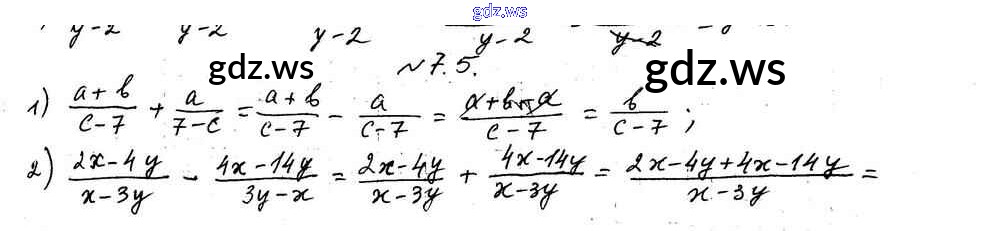 gdz.ws
y-2 y-2 y-2 y-2 y-2
№7.5.
gdz.ws gdz.ws
1) (a+b)/(c-7) + a/(7-c) = (a+b)/(c-7) - a/(c-7) = (a+b-a)/(c-7) = b/(c-7);
2) (2x-4y)/(x-3y) - (4x-14y)/(3y-x) = (2x-4y)/(x-3y) + (4x-14y)/(x-3y) = (2x-4y+4x-14y)/(x-3y) =